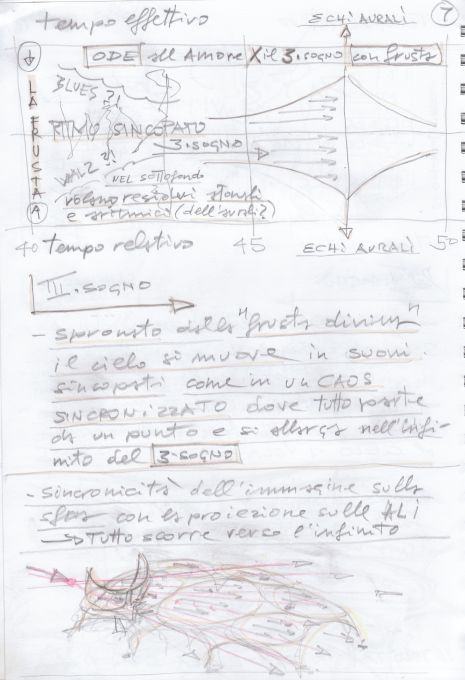 tempo effettivo
ECHI AURALI
7
ODE all Amore X il 3. SOGNO con frusta
LA FRUSTA
BLUES ?!
RITMO SINCOPATO
3. SOGNO
VALZ ?!
NEL SOTTOFONDO
volano residui
e aritmici (dell'aurali?)
40 tempo relativo 45 ECHI AURALI 50
III. SOGNO
- spronato dalla "frusta divina"
il cielo si muove in suoni
sincopati come in un CAOS
SINCRONIZZATO dove tutto parte
da un punto e si allarga nell'infi-
nito del 3-SOGNO
- sincronicità dell'immagine sulla
sfera con la proiezione sulle ALI
→ Tutto scorre verso l'infinito